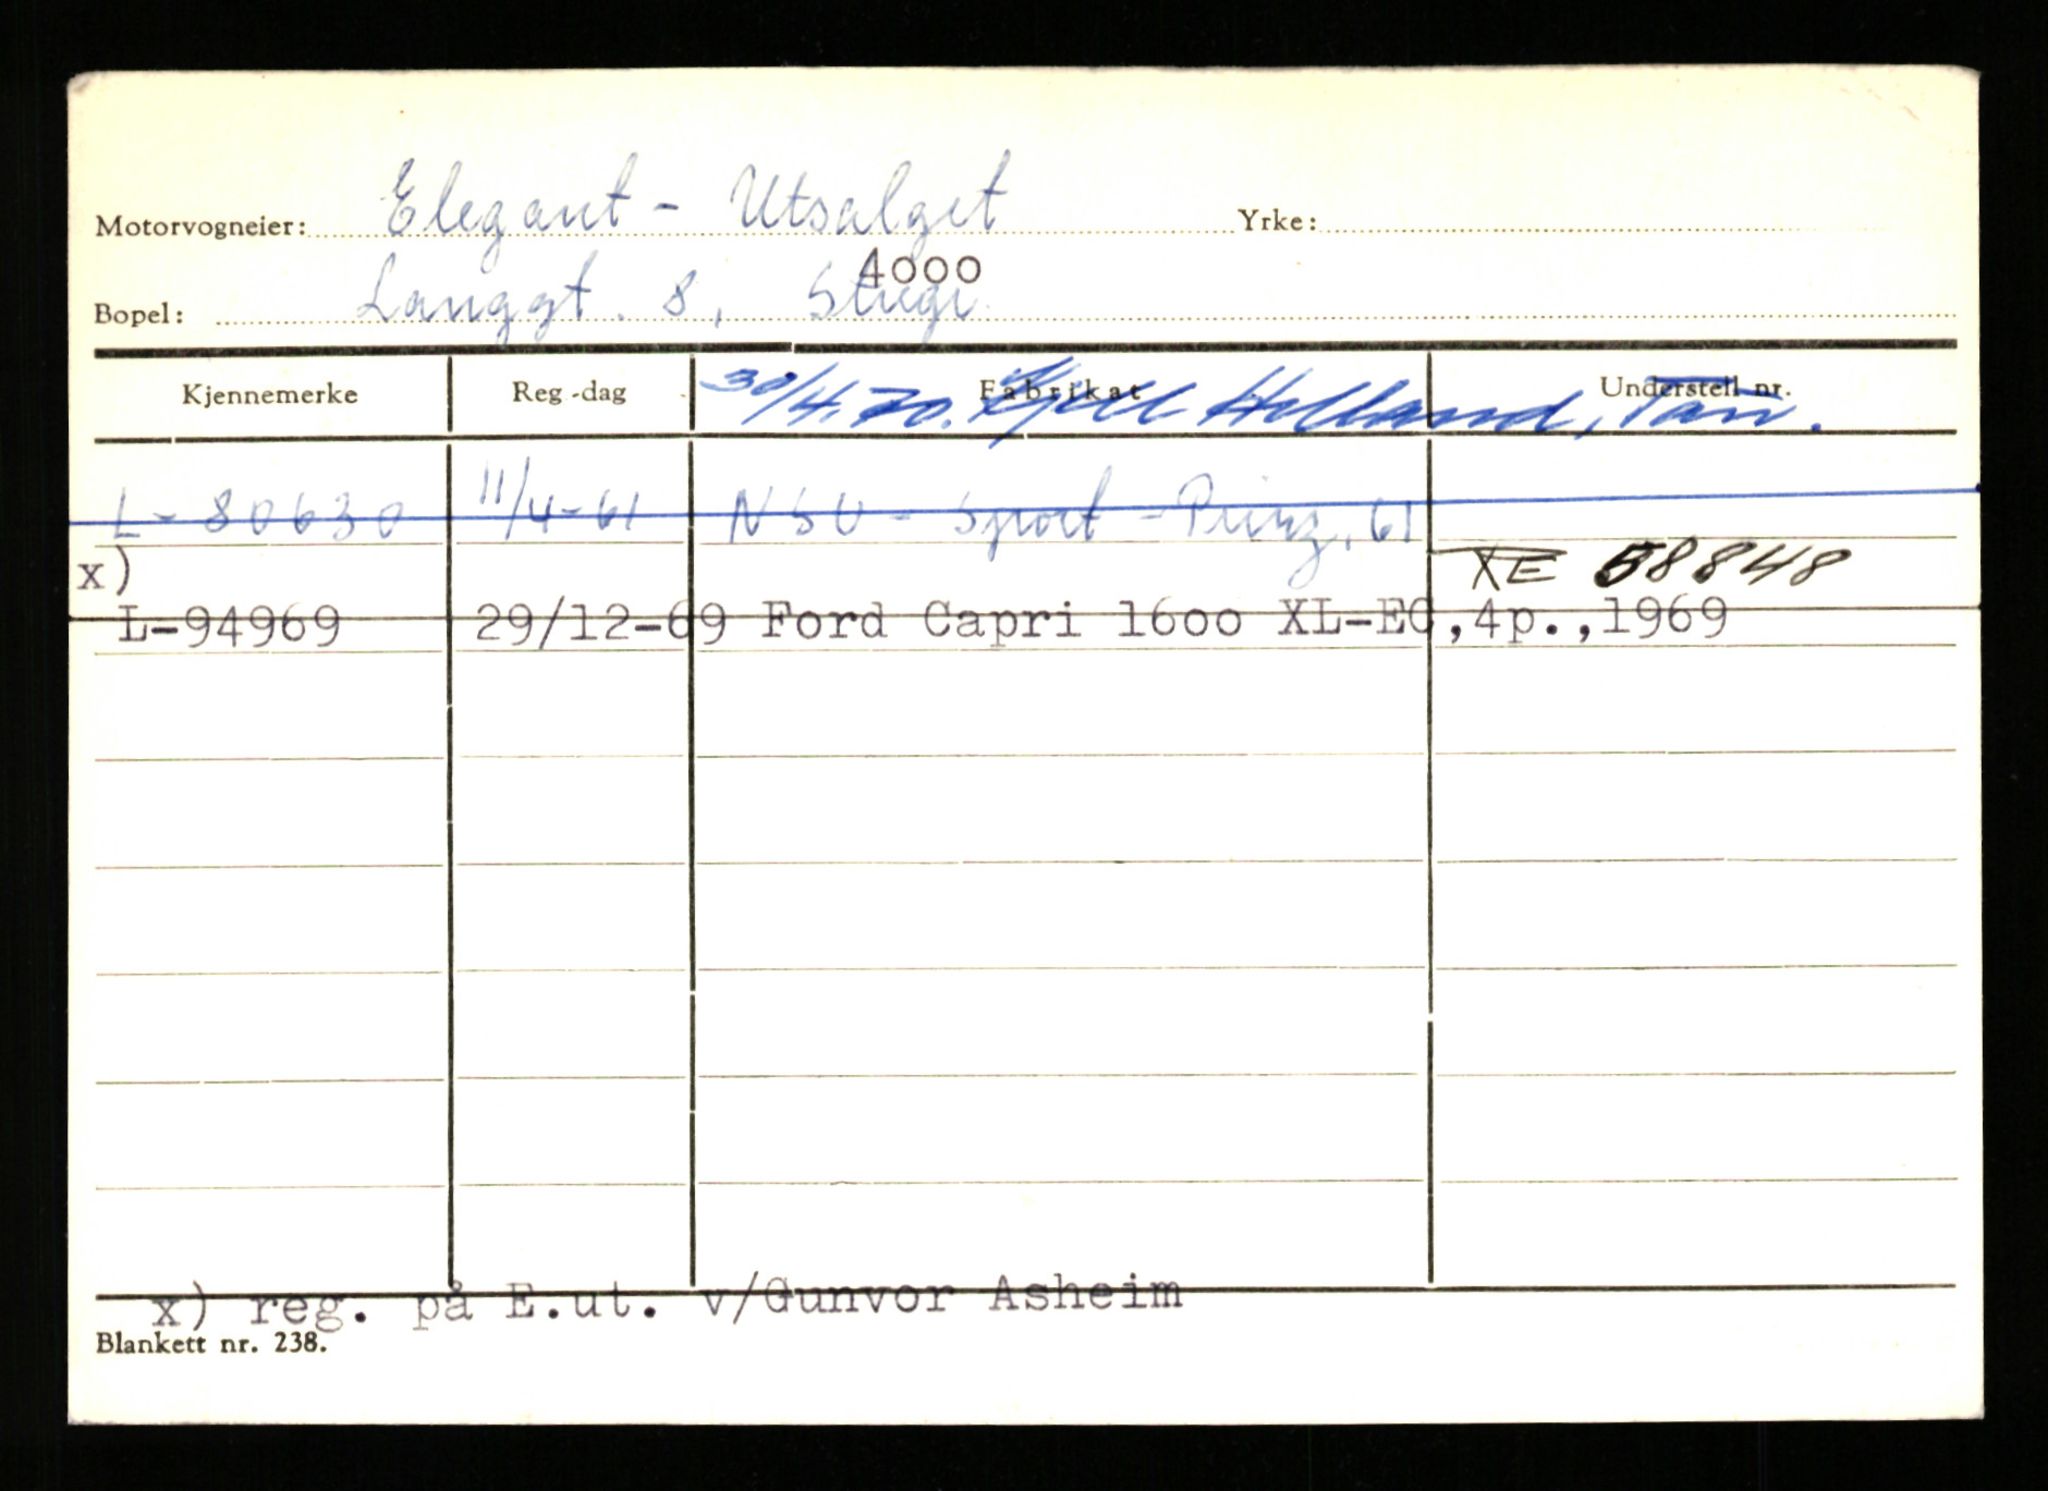 Motorvogneier: Elegant - Utsalget Yrke:
4000
Bopel: Langgt. 8, Stvgr.
Kjennemerke Reg.-dag Fabrikat Understell nr.
30/4.70. Kjell Helland, Tau.
L - 80630 11/4-61 NSU - Sport - Prinz, 61
x) XE 58848
L-94969 29/12-69 Ford Capri 1600 XL-EC,4p.,1969
x) reg. på E.ut. v/Gunvor Asheim
Blankett nr. 238.